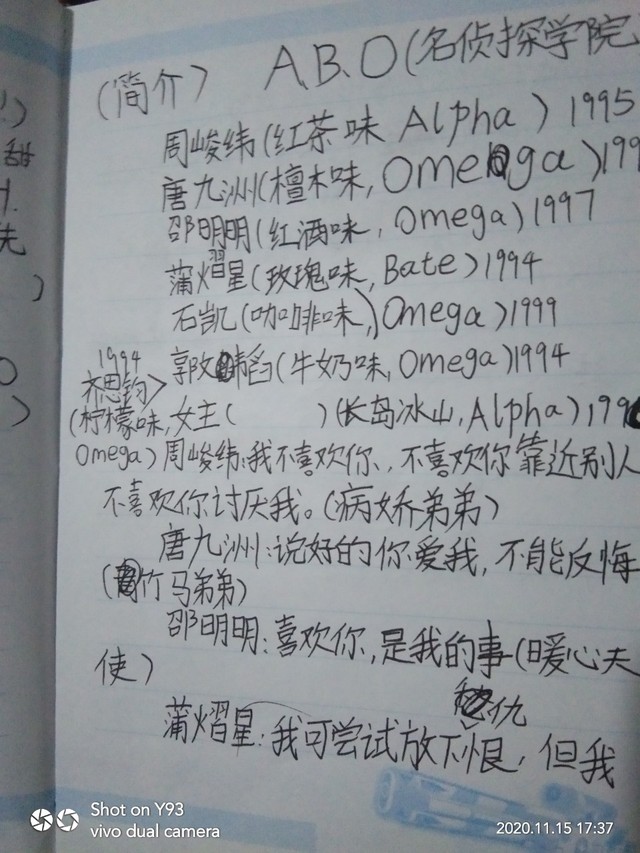 (简介) A.B.O(名侦探学院
周峻纬(红茶味 Alpha) 1995
唐九洲(檀木味, Omega)199
邵明明(红酒味, Omega)1997
蒲熠星(玫瑰味, Bate)1994
石凯(咖啡味, Omega)1999
郭文韬(牛奶味, Omega)1994
1994
齐思钧>
(柠檬味,
Omega)
女主( )(长岛冰山, Alpha)199
周峻纬:我不喜欢你, 不喜欢你靠近别人
不喜欢你讨厌我。(病娇弟弟)
唐九洲:说好的你爱我, 不能反悔
(竹马弟弟)
邵明明:喜欢你, 是我的事(暖心天
使)
蒲熠星:我可尝试放下仇恨, 但我
!)
甜
先
)
)
Shot on Y93
vivo dual camera
2020.11.15 17:37